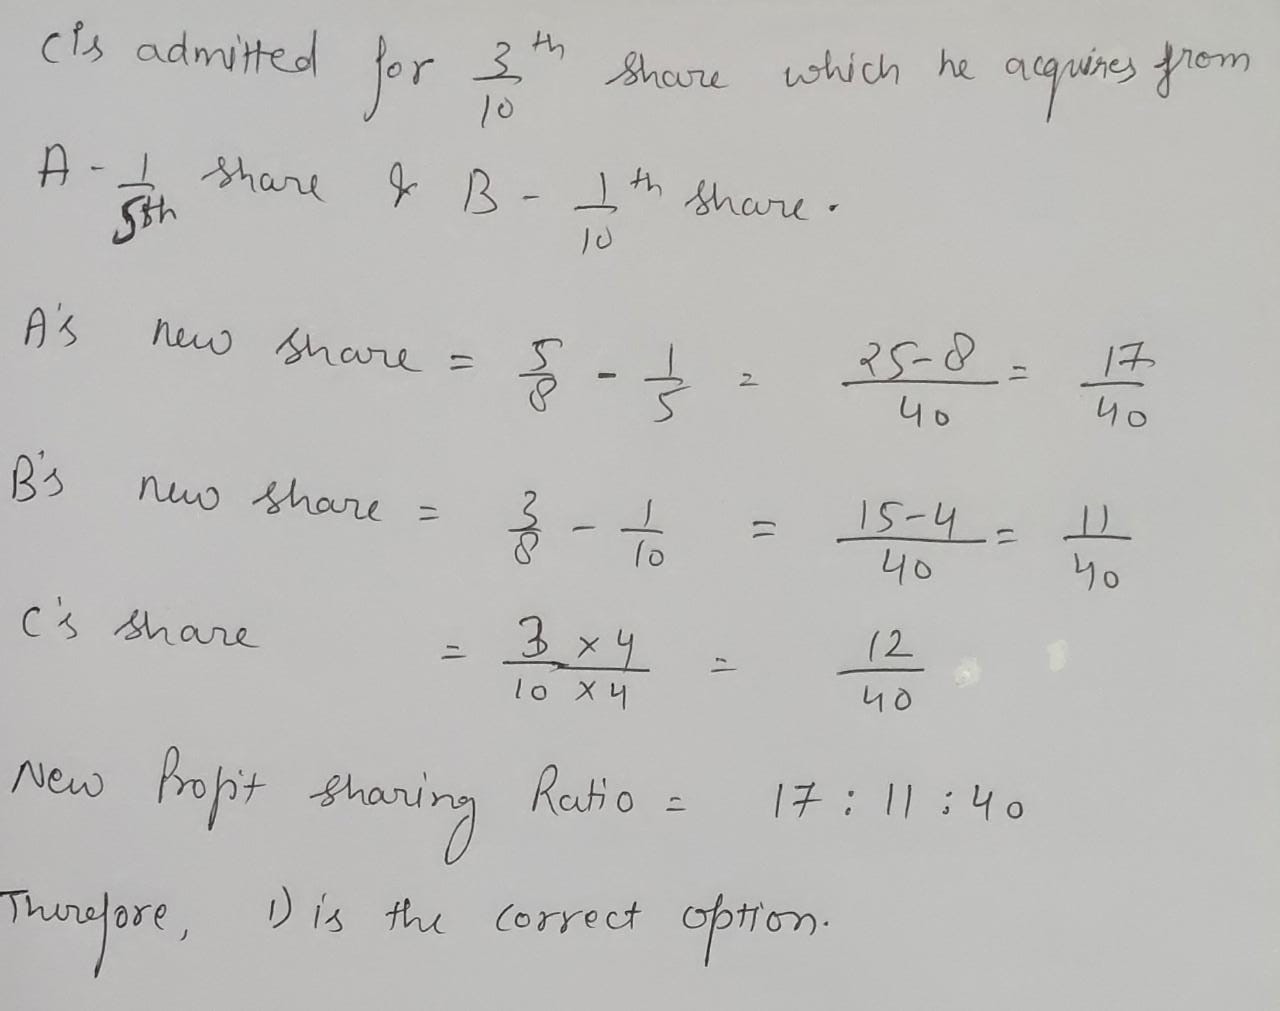 C is admitted for 3/10 th share which he acquires from
A - 1/5th share & B - 1/10 th share.
A's new share = 5/8 - 1/5 = 25-8/40 = 17/40
B's new share = 3/8 - 1/10 = 15-4/40 = 11/40
C's share = 3 x 4/10 x 4 = 12/40
New Profit sharing Ratio = 17 : 11 : 40
Therefore, 1) is the correct option.